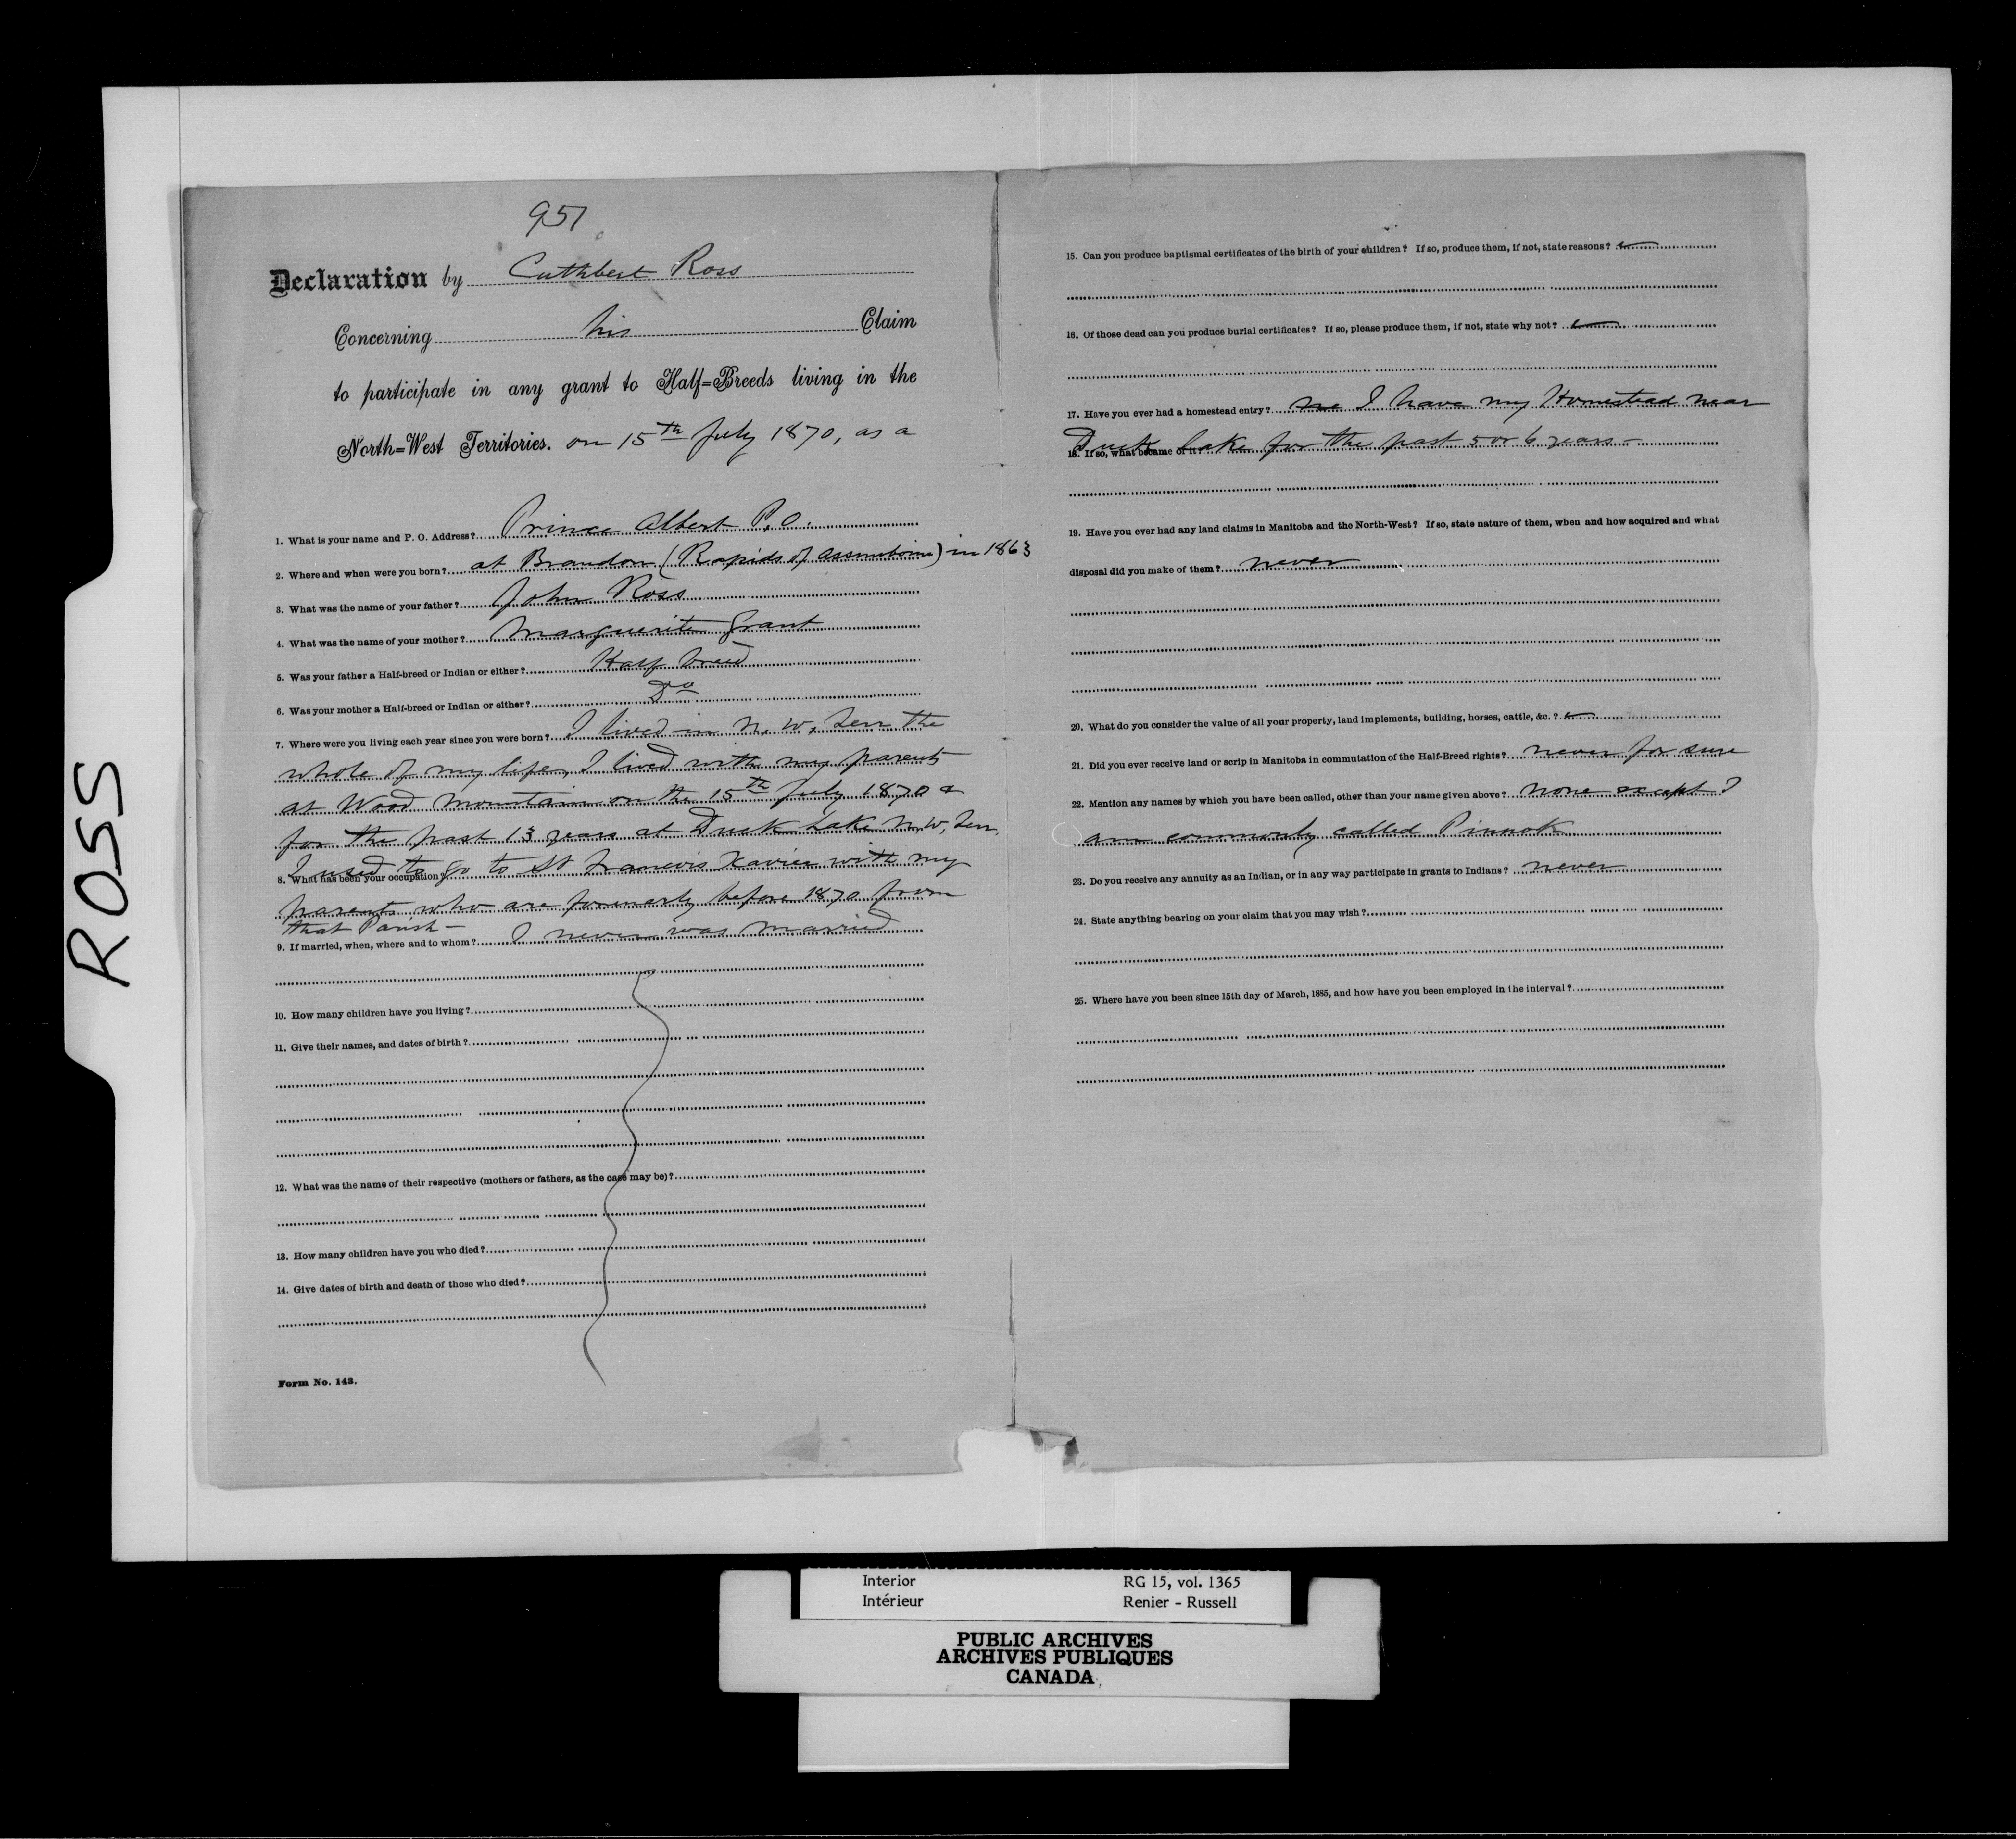 ROSS
951
Declaration by Cuthbert Ross
Concerning his Claim
to participate in any grant to Half=Breeds living in the
North=West Territories. on 15th July 1870, as a
1. What is your name and P. O. Address? Prince Albert P.O.
2. Where and when were you born? at Brandon (Rapids of Assiniboine) in 1863
3. What was the name of your father? John Ross
4. What was the name of your mother? Marguerite Grant
5. Was your father a Half-breed or Indian or either? Half breed
6. Was your mother a Half-breed or Indian or either? Do
7. Where were you living each year since you were born? I lived in N. W. Terr the
whole of my life, I lived with my parents
at Wood Mountain on the 15th July 1870 &
for the past 13 years at Duck Lake N.W. Terr.
I used to go to St Francois Xavier with my
8. What has been your occupation?
parents who are formerly before 1870 from
that Parish -
9. If married, when, where and to whom? I never was married
10. How many children have you living?
11. Give their names, and dates of birth?
12. What was the name of their respective (mothers or fathers, as the case may be)?
13. How many children have you who died?
14. Give dates of birth and death of those who died?
Form No. 143.
15. Can you produce baptismal certificates of the birth of your children? If so, produce them, if not, state reasons?
16. Of those dead can you produce burial certificates? If so, please produce them, if not, state why not?
17. Have you ever had a homestead entry? no I have my Homestead near
Duck Lake for the past 5 or 6 years -
18. If so, what became of it?
19. Have you ever had any land claims in Manitoba and the North-West? If so, state nature of them, when and how acquired and what
disposal did you make of them? never
20. What do you consider the value of all your property, land implements, building, horses, cattle, &c. ?
21. Did you ever receive land or scrip in Manitoba in commutation of the Half-Breed rights? never for sure
22. Mention any names by which you have been called, other than your name given above? none except I
am commonly called Pinnok
23. Do you receive any annuity as an Indian, or in any way participate in grants to Indians? never
24. State anything bearing on your claim that you may wish?
25. Where have you been since 15th day of March, 1885, and how have you been employed in the interval?
Interior RG 15, vol. 1365
Intérieur Renier - Russell
PUBLIC ARCHIVES
ARCHIVES PUBLIQUES
CANADA